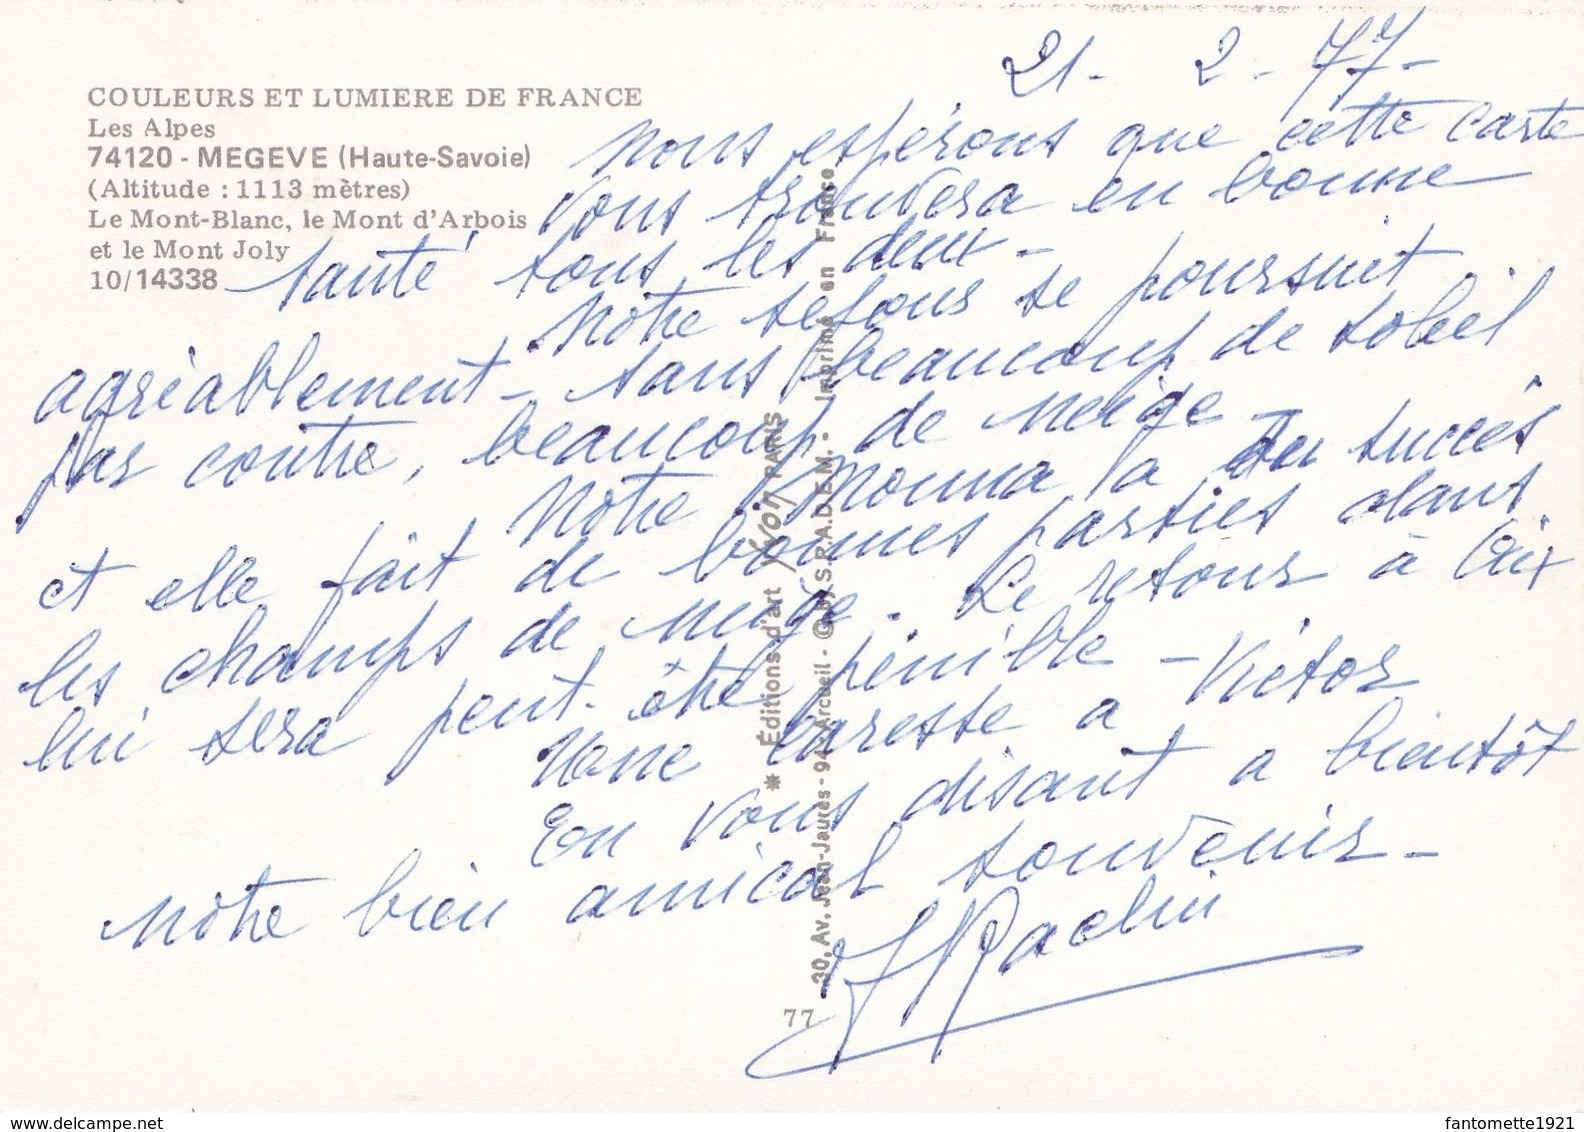 21 - 2 - 77 -
COULEURS ET LUMIERE DE FRANCE
Les Alpes
74120 - MEGEVE (Haute-Savoie)
(Altitude : 1113 mètres)
Le Mont-Blanc, le Mont d'Arbois
et le Mont Joly
10/14338
Nous espérons que cette carte
vous trouvera en bonne
santé tous les deux -
Notre séjour se poursuit
agréablement - sans beaucoup de soleil
par contre, beaucoup de neige -
Notre Mouna a du succès
et elle fait de bonnes parties dans
les champs de neige. Le retour à Aix
lui sera peut-être pénible -
Une caresse a Victor
En vous disant a bientôt
notre bien amical souvenir -
* Éditions d'art Yvon PARIS
30, Av. Jean-Jaurès - 94 - Arcueil - © by S.P.A.D.E.M. - Imprimé en France
77
fantomette1921